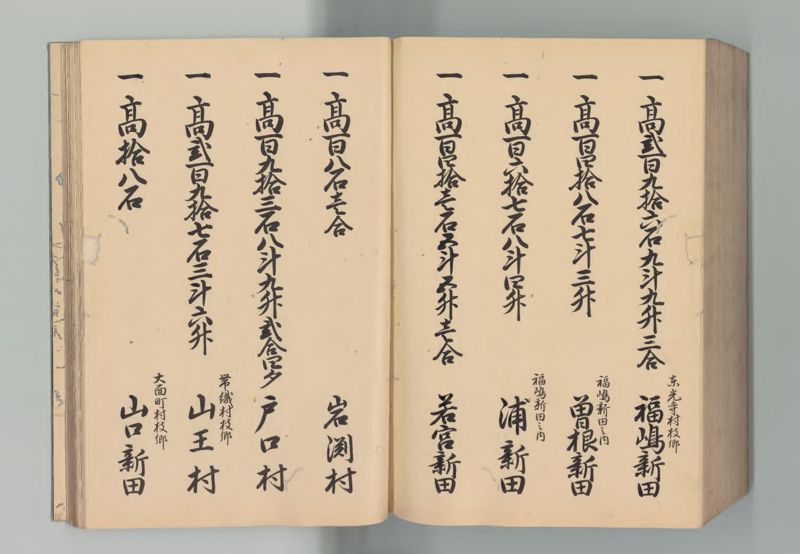 東光寺村枝郷
一 高貳百九拾六石九斗九升三合 福嶋新田
福嶋新田之内
一 高百四拾八石七斗三升 曽根新田
福嶋新田之内
一 高百六拾七石八斗四升 浦新田
一 高百四拾壱石五斗五升壱合 若宮新田
一 高百八石壱合 岩渕村
一 高百九拾三石八斗九升貳合四夕 戸口村
帯織村枝郷
一 高貳百九拾七石三斗六升 山王村
大面町村枝郷
一 高拾八石 山口新田